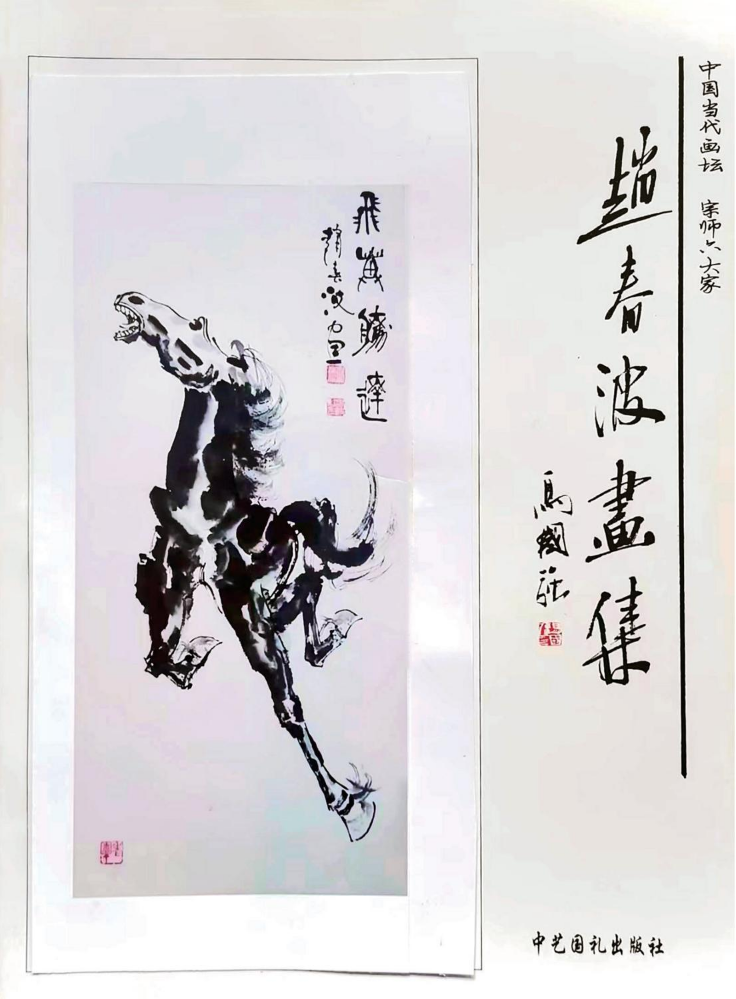 中国当代画坛 宗师六大家
趙春波畫集
馬國強
飛黄騰達
趙春波
中艺国礼出版社